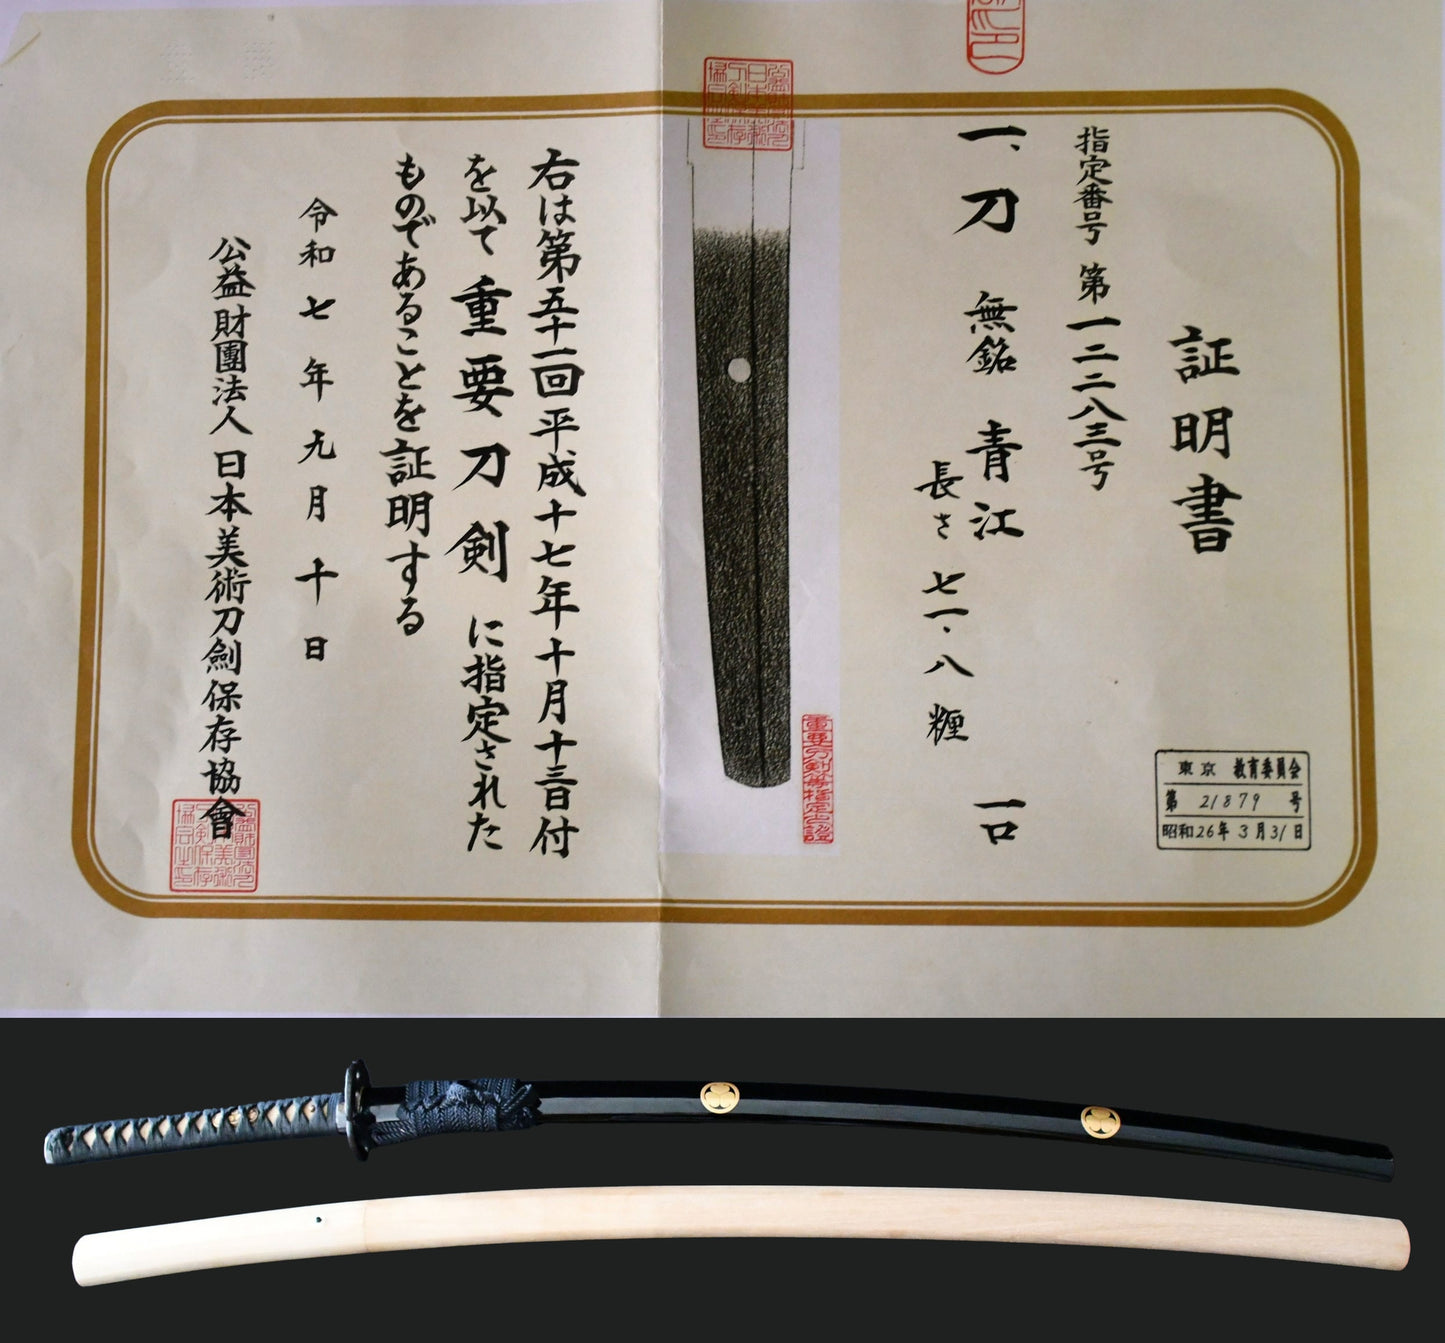 証明書
指定番号 第一二二八三号
一、刀 無銘 青江 一口
長さ 七一、八糎
右は第五十一回平成十七年十月十三日付
を以て重要刀剣に指定された
ものであることを証明する
令和七年九月十日
公益財團法人日本美術刀劍保存協會
東京 教育委員会
第 21879 号
昭和26年3月31日